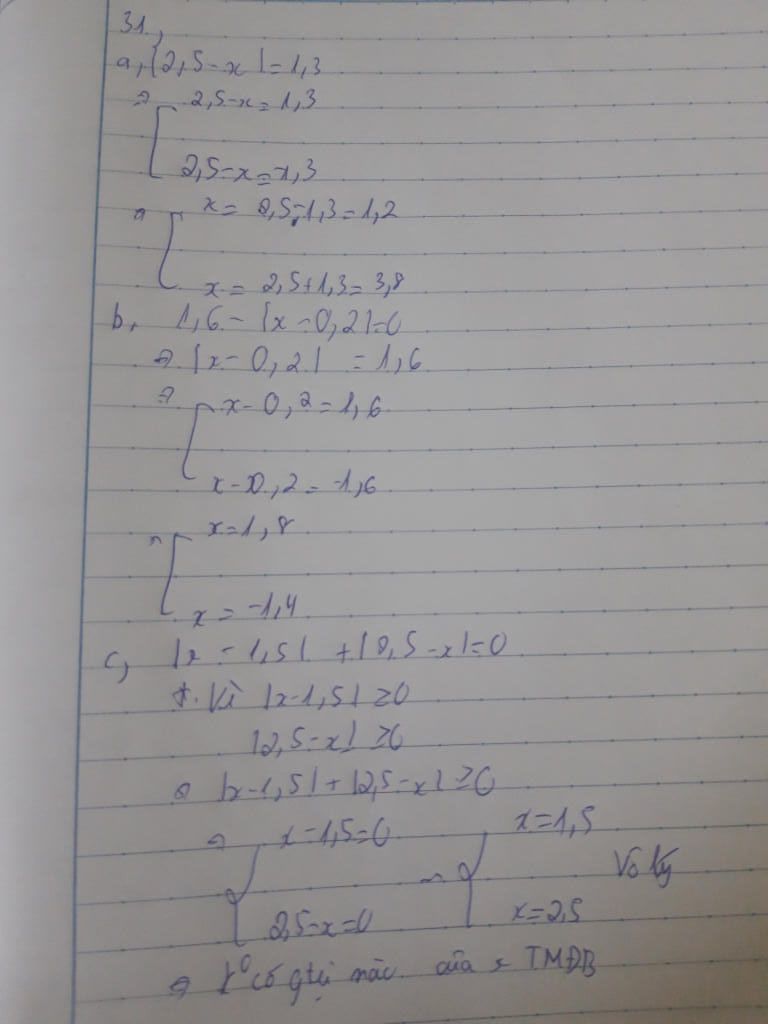 31,
a, |2,5-x|=1,3
⇒ 2,5-x=1,3
2,5-x=-1,3
⇒ x= 2,5-1,3=1,2
x= 2,5+1,3=3,8
b, 1,6-|x-0,2|=0
⇒ |x-0,2| =1,6
⇒ x-0,2=1,6
x-0,2=-1,6
⇒ x=1,8
x=-1,4
c, |x-1,5| +|2,5-x|=0
+. Vì |x-1,5| ≥0
|2,5-x| ≥0
⇒ |x-1,5|+|2,5-x| ≥0
⇒ x-1,5=0 ⇒ x=1,5
Vô lý
2,5-x=0 x=2,5
⇒ k⁰ có gtrị nào của x TMĐB